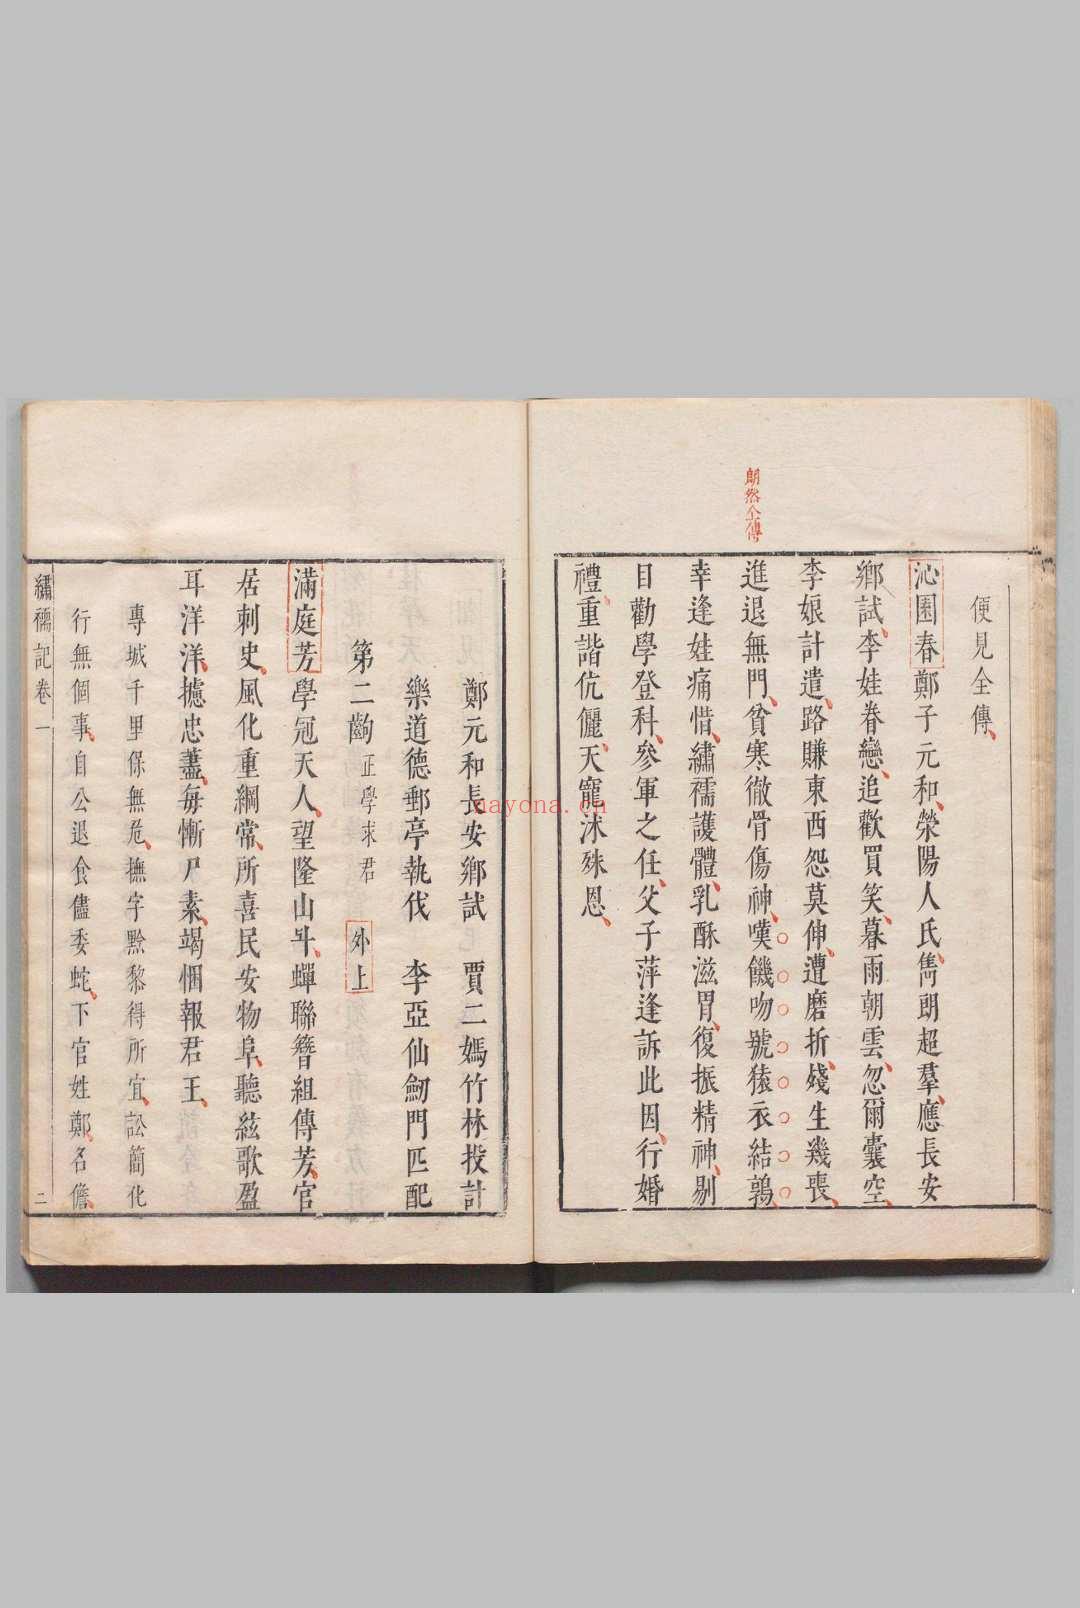 朗然全傳
便見全傳
沁園春鄭子元和滎陽人氏雋朗超羣應長安
鄉試李娃眷戀追歡買笑暮雨朝雲忽爾囊空
李娘計遣路賺東西怨莫伸遭磨折殘生幾喪
進退無門貧寒徹骨傷神嘆饑吻號猿衣結鶉
幸逢娃痛惜繡襦護體乳酥滋胃復振精神剔
目勸學登科參軍之任父子萍逢訴此因行婚
禮重諧伉儷天寵沐殊恩
鄭元和長安鄉試 賈二媽竹林投計
樂道德郵亭執伐 李亞仙劒門匹配
第二齣 正學求君 外上
滿庭芳學冠天人望隆山斗蟬聯簪組傳芳官
居刺史風化重綱常所喜民安物阜聽絃歌盈
耳洋洋攄忠藎每慚尸素竭悃報君王
專城千里保無危撫字黔黎得所宜訟簡化
行無個事自公退食儘委蛇下官姓鄭名儋
繡襦記卷一 二
nayona.cn